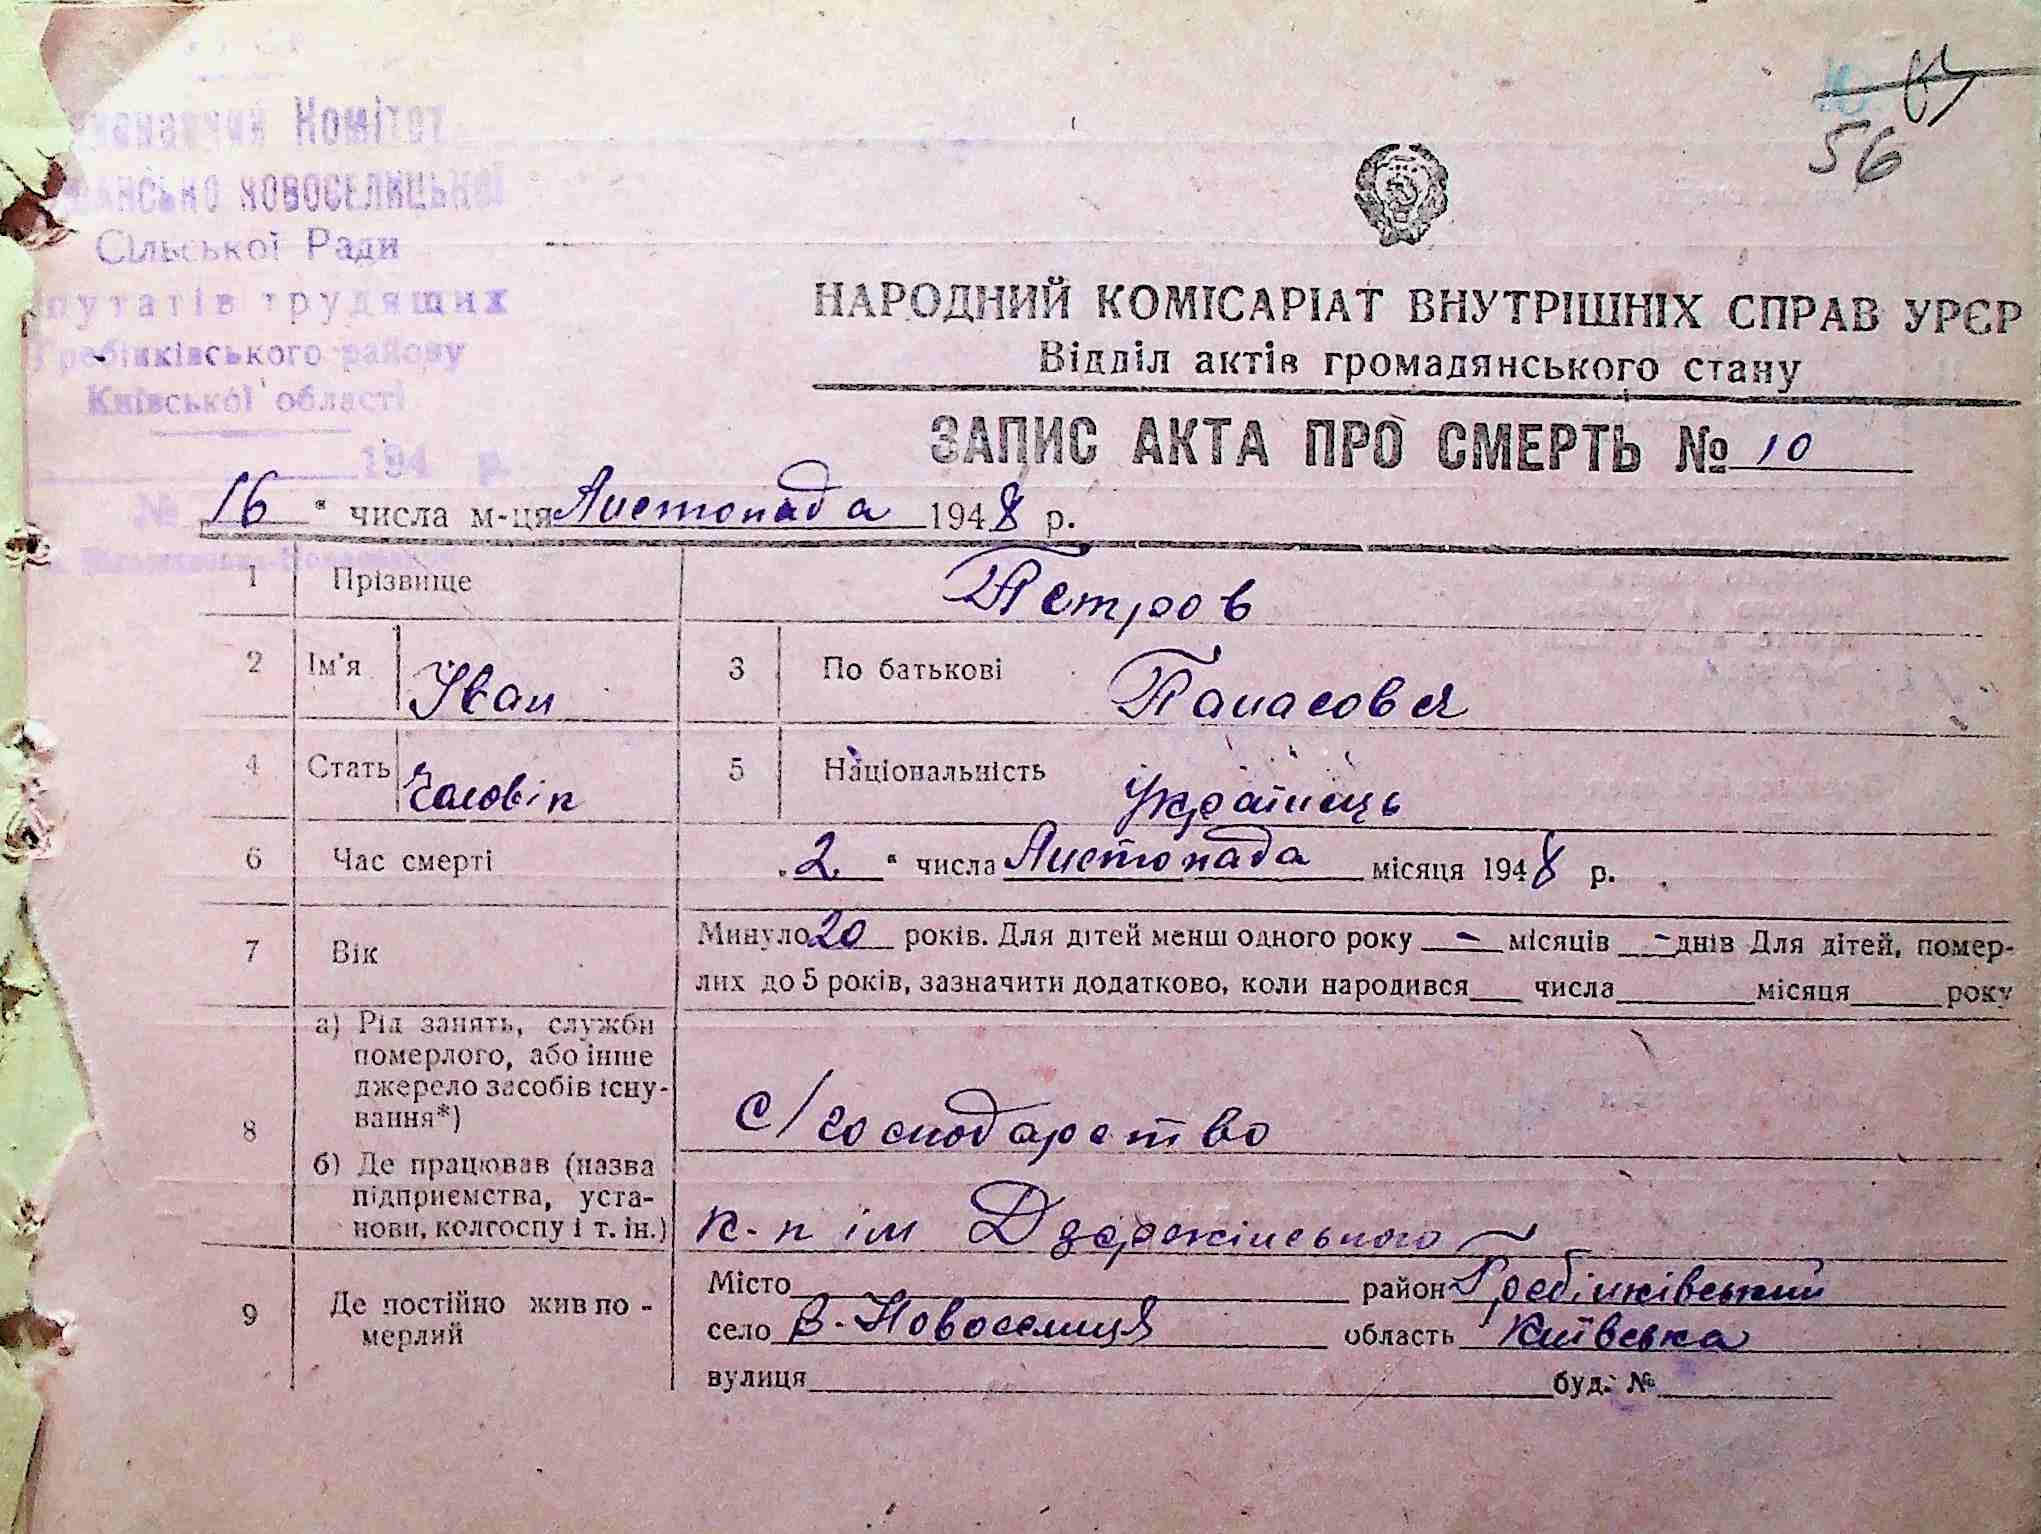 56
Комітет
новоселицької
Сільської Ради
путатів трудящих
Гребінківського району
Київської області
194 р.
НАРОДНИЙ КОМІСАРІАТ ВНУТРІШНІХ СПРАВ УРЄР
Відділ актів громадянського стану
ЗАПИС АКТА ПРО СМЕРТЬ № 10
№
16 " числа м-ця Листопада 1948 р.
1 Прізвище Петров
2 Ім'я Іван 3 По батькові Панасовя
4 Стать Чоловік 5 Національність Українець
6 Час смерті „2 " числа Листопада місяця 1948 р.
7 Вік Минуло 20 років. Для дітей менш одного року - місяців - днів Для дітей, помер-
лих до 5 років, зазначити додатково, коли народився числа місяця року
8 а) Рід занять, служби
померлого, або інше
джерело засобів існу-
вання*) с/господарство
б) Де працював (назва
підприємства, уста-
нови, колгоспу і т. ін.) к-п ім Дзержінського
9 Де постійно жив по-
мерлий
Місто район Гребінківський
село В-Новоселиця область Київська
вулиця буд. №